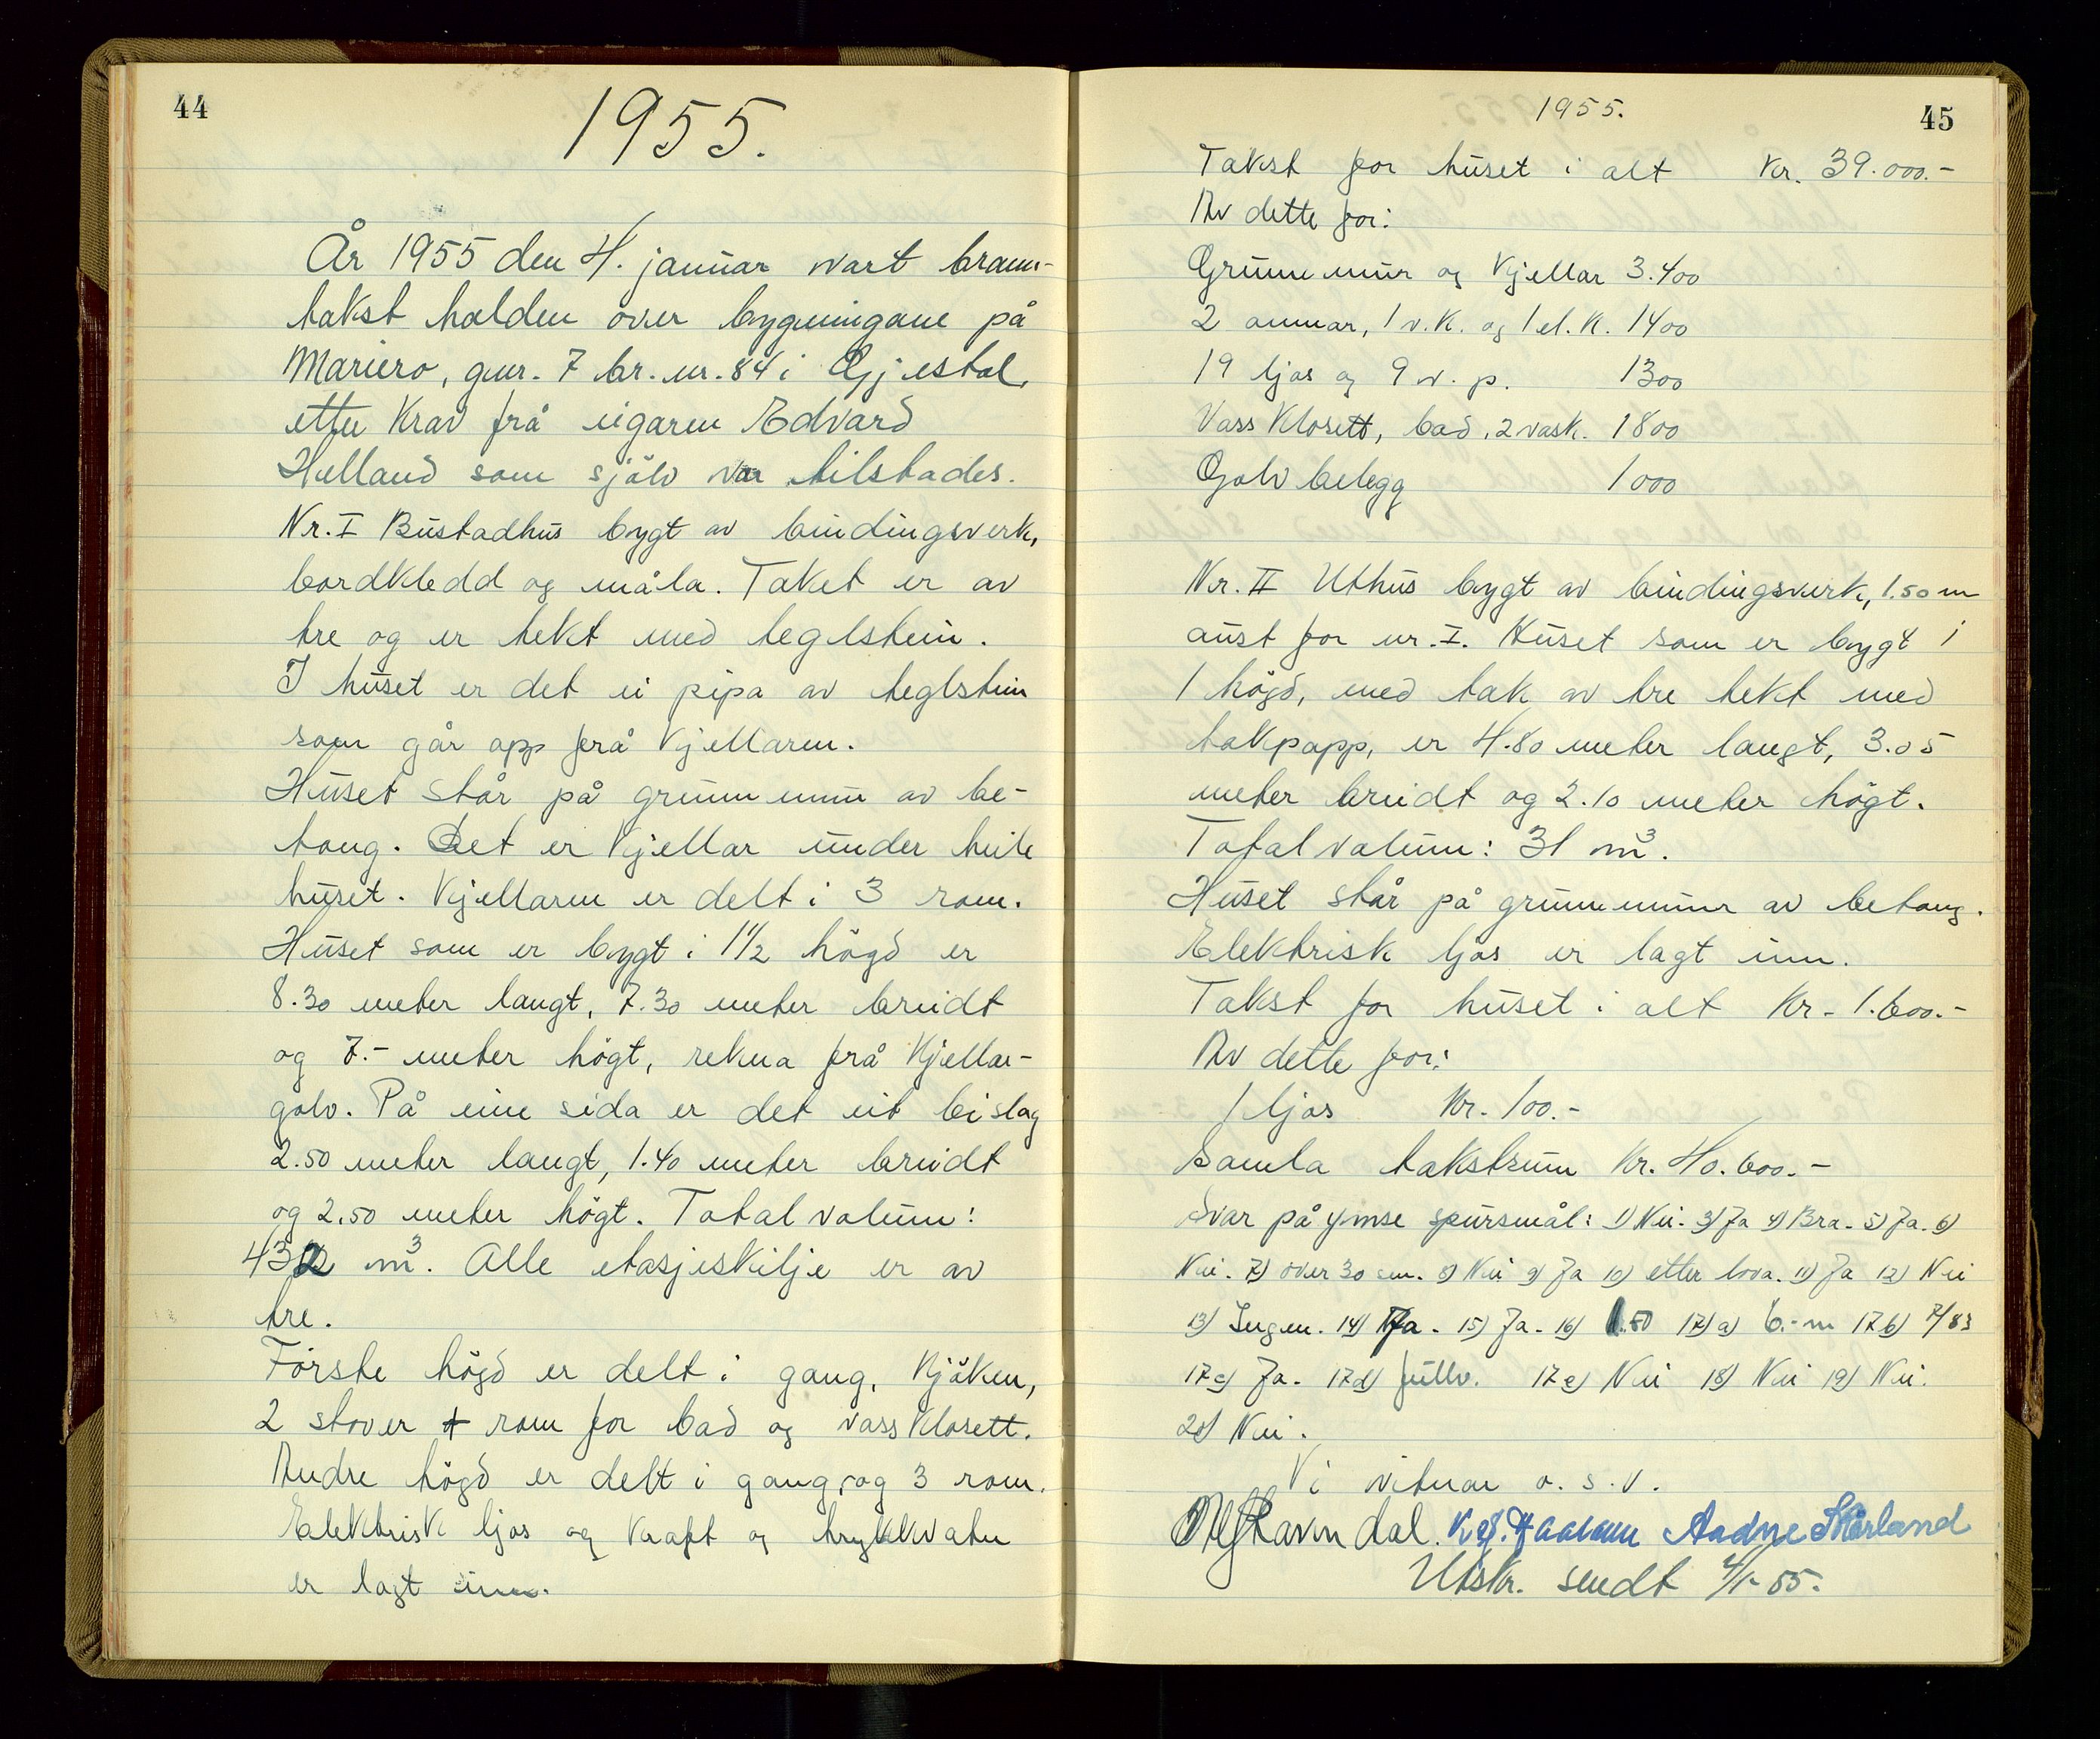 44
1955.
År 1955 den 4. januar vart brann-
takst halden over bygningane på
Mariero, gnr. 7 br.nr. 84 i Gjestal,
etter krav frå eigaren Edvard
Helland som sjölv var tilstades.
Nr. I Bustadhus bygt av bindingsverk,
bordkledd og måla. Taket er av
tre og er tekt med teglstein.
I huset er det ei pipa av teglstein
som går opp frå kjellaren.
Huset står på grunnmur av be-
tong. Det er kjellar under heile
huset. Kjellaren er delt i 3 rom.
Huset som er bygt i 1 1/2 högd er
8.30 meter langt, 7.30 meter breidt
og 7.- meter högt, rekna frå kjellar-
golv. På eine sida er det eit bislag
2.50 meter langt, 1.40 meter breidt
og 2.50 meter högt. Total volum:
432 m³. Alle etasjeskilje er av
tre.
Förste högd er delt i gang, kjöken,
2 stover + rom for bad og vassklosett.
Andre högd er delt i gang, og 3 rom.
Elektrisk ljos og kraft og trykkvatn
er lagt inn.
1955.
45
Takst for huset i alt kr. 39.000.-
Av dette for:
Grunnmur og kjellar 3.400
2 omnar, 1 v.k. og 1 el.k. 1400
19 ljos og 9 v.p. 1300
Vassklosett, bad, 2 vask. 1800
Golvbelegg 1000
Nr. II Uthus bygt av bindingsverk, 1.50 m
aust for nr. I. Huset som er bygt i
1 högd, med tak av tre tekt med
takpapp, er 4.80 meter langt, 3.05
meter breidt og 2.10 meter högt.
Total volum: 31 m³.
Huset står på grunnmur av betong.
Elektrisk ljos er lagt inn.
Takst for huset i alt kr. 1.600.-
Av dette for:
1 ljos kr. 100.-
Samla takstsum kr. 40.600.-
Svar på ymse spursmål: 1) Nei. 3) Ja 4) Bra. 5) Ja. 6)
Nei. 7) over 30 cm. 8) Nei 9) Ja 10) etter lova. 11) Ja 12) Nei
13) Ingen. 14) Ja. 15) Ja. 16) 1.50 17) a) 6.- m 17b) 7/83
17c) Ja. 17d) fullv. 17e) Nei 18) Nei 19) Nei.
20) Nei.
Vi vitnar o.s.v.
Ravndal. Aadne Skårland
Utskr. sendt 4/1-55.